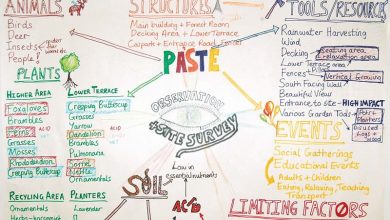 ANIMALS
Birds
Deer
Insects
People!
STRUCTURES
Main building + Forest Room
Decking Area + Lower Terrace
Carpark + Entrance Road, Fences
TOOLS/RESOURCES
Rainwater Harvesting
Wind
Decking
Seating area,
Lower Terrace area
Fences
Vertical Growing
South Facing Wall
Beautiful View
Entrance to site - HIGH IMPACT
Various Garden Tools
Pots + Planters
PASTE
OBSERVATION
+ SITE SURVEY
PLANTS
HIGHER AREA
Foxgloves
Brambles
Ferns
Grasses
Mosses
Rhododendron
Creeping Buttercup
ACID
LOWER TERRACE
Creeping Buttercup
Grasses
Yarrow
Dandelion
Brambles
Plantain
Sorrel
Nettle
ACID
RECYCLING AREA
Ornamentals
PLANTERS
Lavender
SOIL
Low in
essential nutrients
ACID
EVENTS
Social Gatherings
Educational Events
Adults + Children
Eating, Relaxing, Teaching
Transport
LIMITING FACTORS